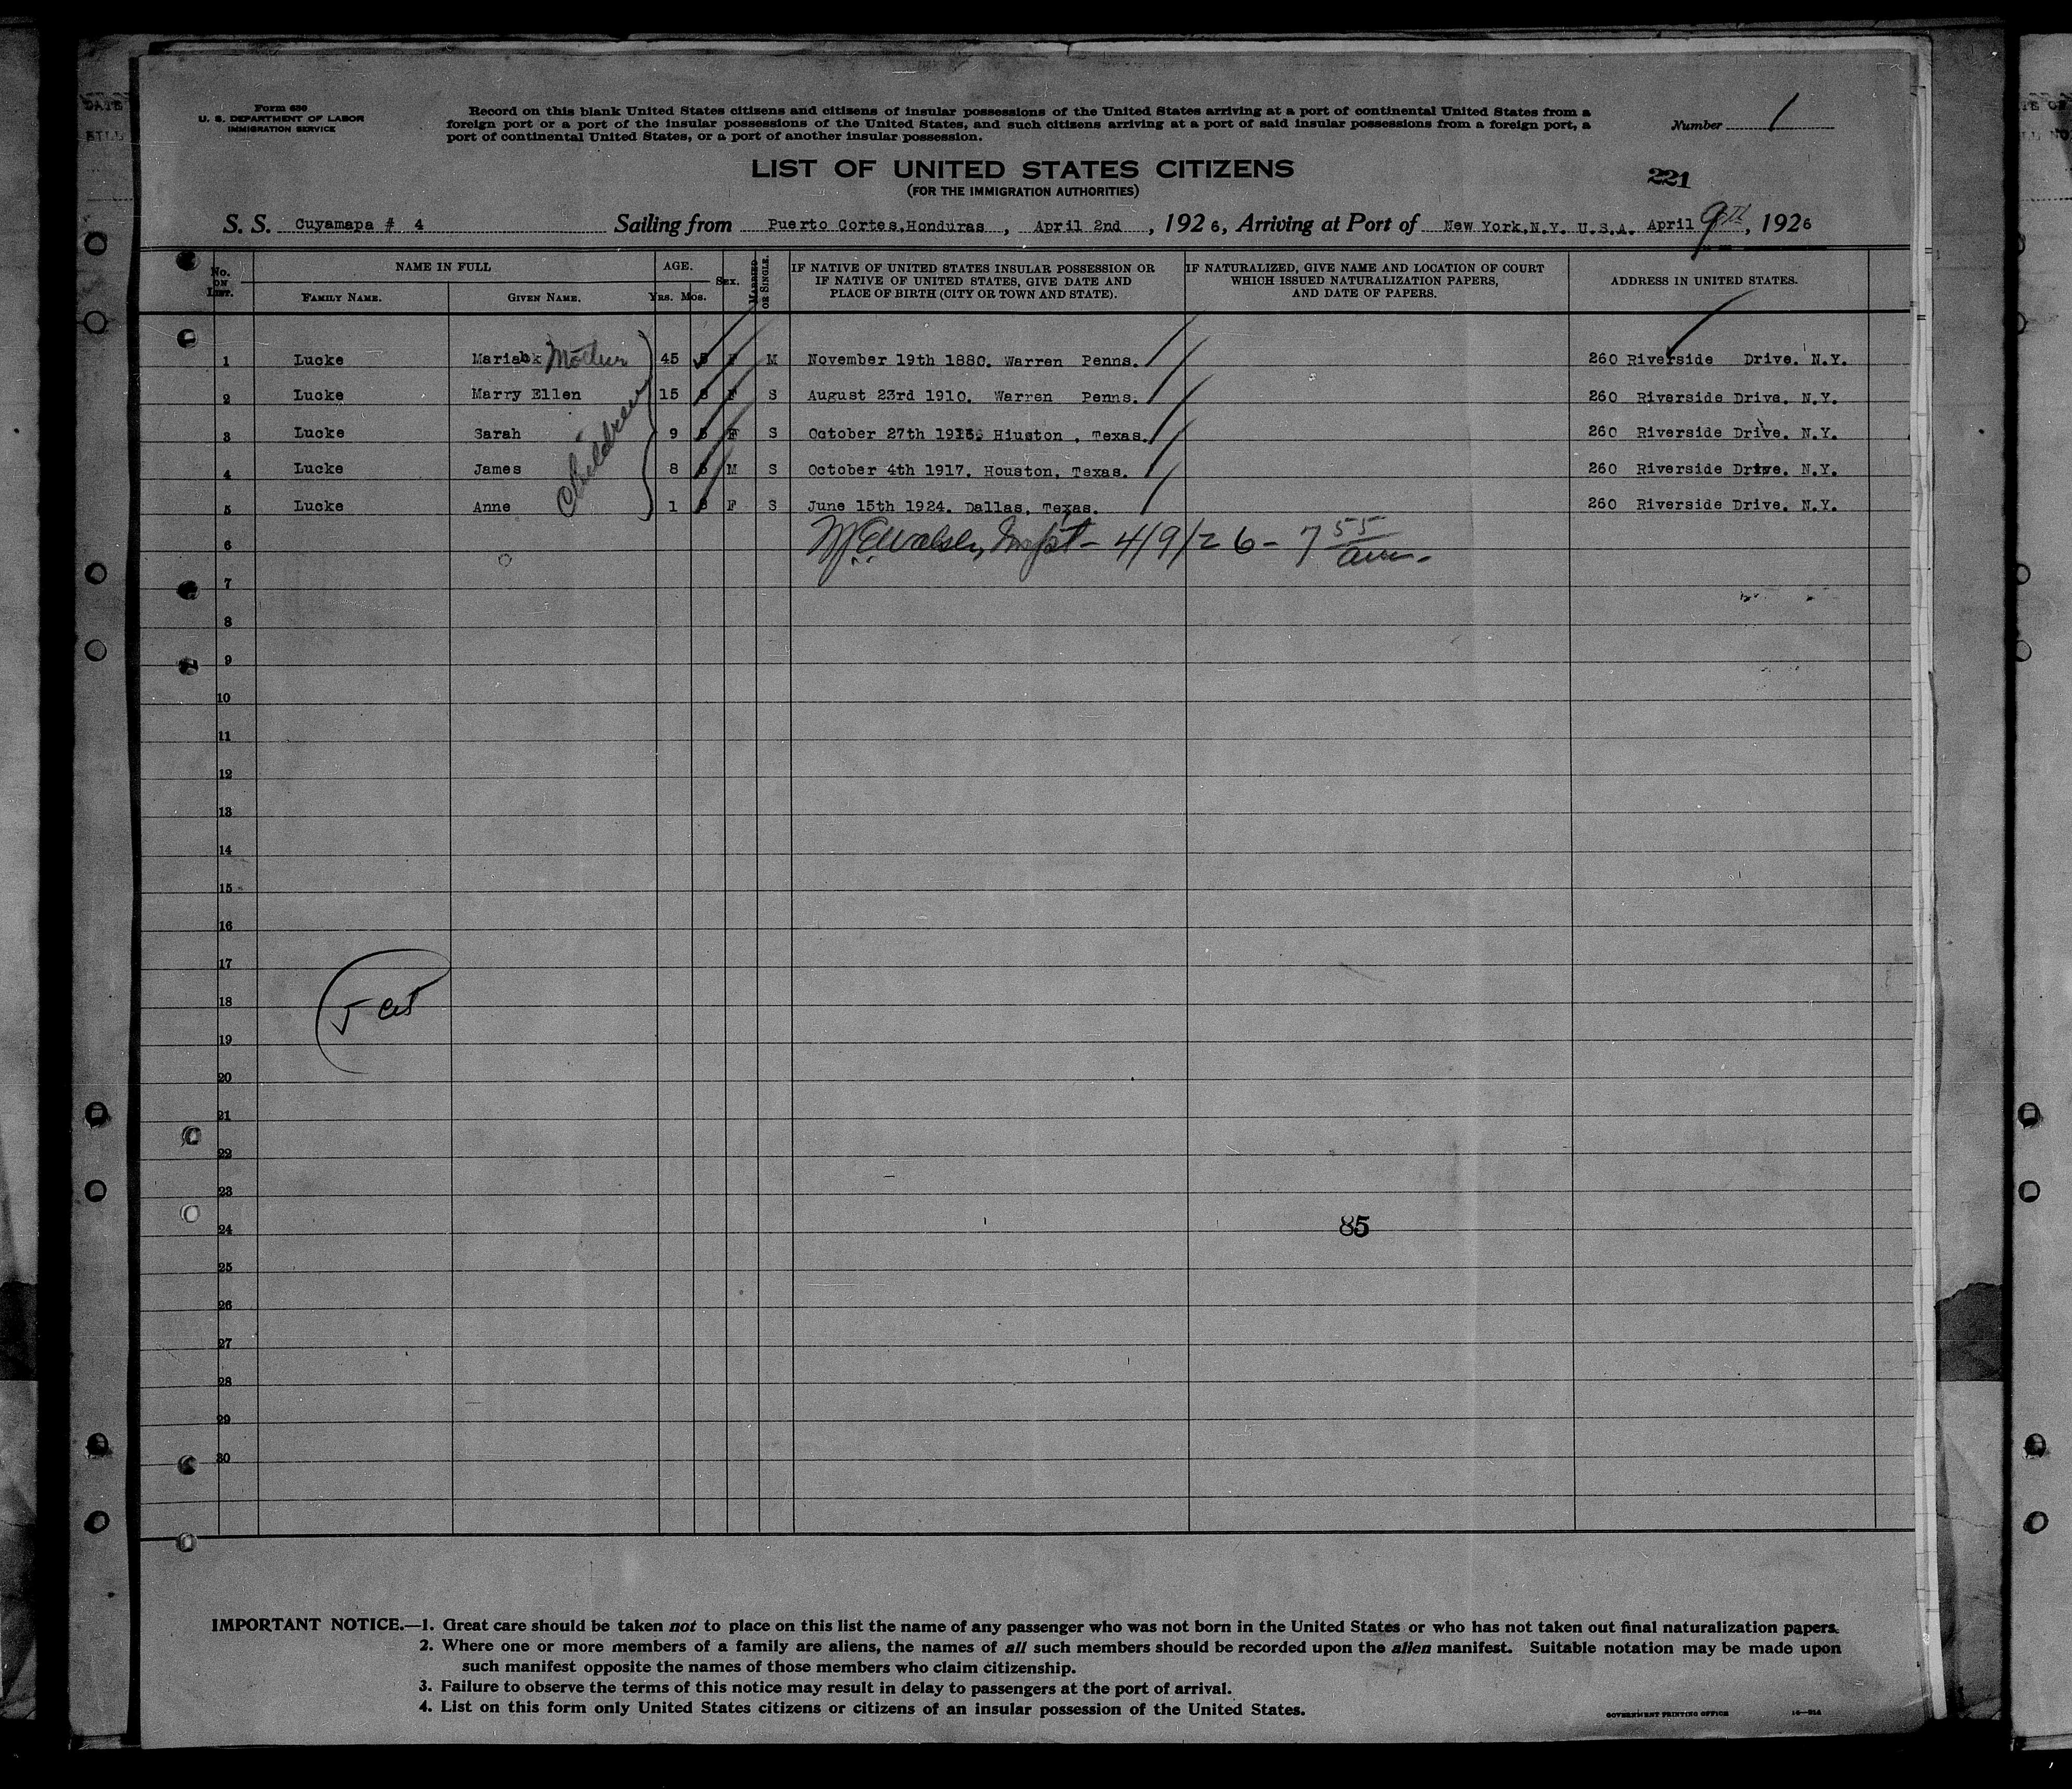 Form 630
U. S. DEPARTMENT OF LABOR
IMMIGRATION SERVICE
Record on this blank United States citizens and citizens of insular possessions of the United States arriving at a port of continental United States from a
foreign port or a port of the insular possessions of the United States, and such citizens arriving at a port of said insular possessions from a foreign port, a
port of continental United States, or a port of another insular possession.
Number 1
LIST OF UNITED STATES CITIZENS
(FOR THE IMMIGRATION AUTHORITIES)
221
S. S. Cuyamapa # 4 Sailing from Puerto Cortes, Honduras, April 2nd, 1926, Arriving at Port of New York, N.Y. U.S.A. April 9th, 1926
No. ON LIST. NAME IN FULL AGE. Sex. MARRIED OR SINGLE. IF NATIVE OF UNITED STATES INSULAR POSSESSION OR IF NATURALIZED, GIVE NAME AND LOCATION OF COURT ADDRESS IN UNITED STATES.
IF NATIVE OF UNITED STATES, GIVE DATE AND WHICH ISSUED NATURALIZATION PAPERS,
FAMILY NAME. GIVEN NAME. YRS. MOS. PLACE OF BIRTH (CITY OR TOWN AND STATE). AND DATE OF PAPERS.
1 Lucke Mother 45 F M November 19th 1880. Warren Penns. 260 Riverside Drive. N.Y.
2 Lucke Marry Ellen 15 F S August 23rd 1910. Warren Penns. 260 Riverside Drive. N.Y.
3 Lucke Sarah 9 F S October 27th Hiuston, Texas. 260 Riverside Drive. N.Y.
4 Lucke James 8 M S October 4th 1917. Houston, Texas. 260 Riverside Drive. N.Y.
5 Lucke Anne 1 F S June 15th 1924. Dallas, Texas. 260 Riverside Drive. N.Y.
Children
6 Inspt - 4/9/26 - 7 55 am.
7
8
9
10
11
12
13
14
15
16
17
18
19
20
21
22
23
24 85
25
26
27
28
29
30
IMPORTANT NOTICE.—1. Great care should be taken not to place on this list the name of any passenger who was not born in the United States or who has not taken out final naturalization papers.
2. Where one or more members of a family are aliens, the names of all such members should be recorded upon the alien manifest. Suitable notation may be made upon
such manifest opposite the names of those members who claim citizenship.
3. Failure to observe the terms of this notice may result in delay to passengers at the port of arrival.
4. List on this form only United States citizens or citizens of an insular possession of the United States.
GOVERNMENT PRINTING OFFICE